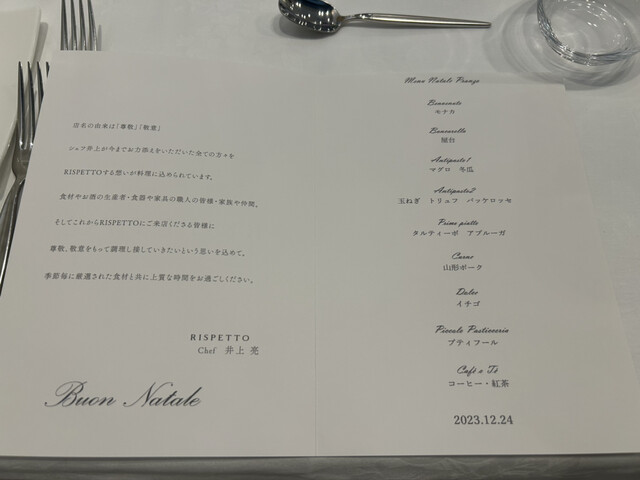 店名の由来は「尊敬」「敬意」
シェフ井上が今までお力添えをいただいた全ての方々を
RISPETTOする想いが料理に込められています。
食材やお酒の生産者・食器や家具の職人の皆様・家族や仲間。
そしてこれからRISPETTOにご来店くださる皆様に
尊敬、敬意をもって調理し接していきたいという思いを込めて。
季節毎に厳選された食材と共に上質な時間をお過ごしください。
RISPETTO
Chef 井上 亮
Buon Natale
Menu Natale Pranzo
Benvenuto
モナカ
Bancarella
屋台
Antipasto1
マグロ 冬瓜
Antipasto2
玉ねぎ トリュフ パッケロッセ
Primo piatto
タルティーボ アブルーガ
Carne
山形ポーク
Dolce
イチゴ
Piccola Pasticceria
プティフール
Café o Tè
コーヒー・紅茶
2023.12.24